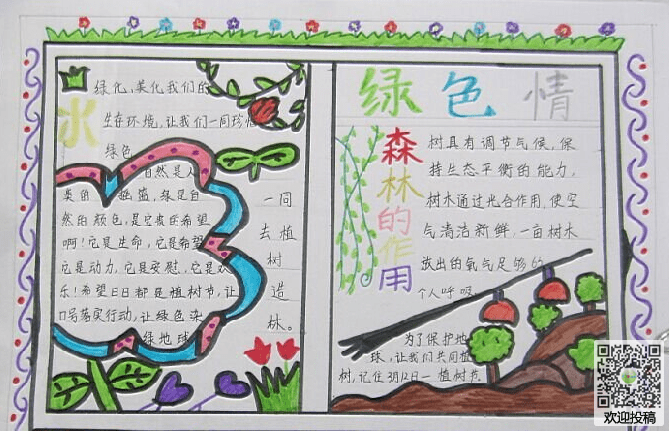 绿化，美化我们的
水
生存环境，让我们一同珍惜
绿色
自然是人
类的摇篮，绿是自
然的颜色，是它表示希望
啊！它是生命，它是希望
它是动力，它是安慰，它是欢
乐！希望日日都是植树节，让
口号落实行动，让绿色染
绿地球
一同
去植
树
造
林。
绿色情
森林的作用
树具有调节气候，保
持生态平衡的能力，
树木通过光合作用，使空
气清洁新鲜，一亩树木
放出的氧气足够的
个人呼吸
为了保护地
球，让我们共同植
树，记住3月12日一植树节
欢迎投稿